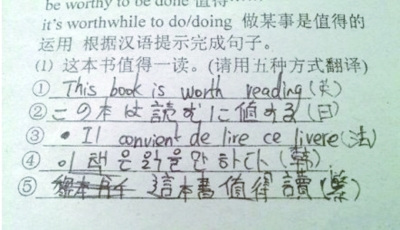 be worthy to be done 值得
it's worthwhile to do/doing 做某事是值得的
运用 根据汉语提示完成句子。
(1) 这本书值得一读。(请用五种方式翻译)
① This book is worth reading (英)
② この本は読むに値する(日)
③ • Il convient de lire ce livere (法)
④ 이 책은 읽을만 하다 (韩)
⑤ 這本書值得讀 (繁)